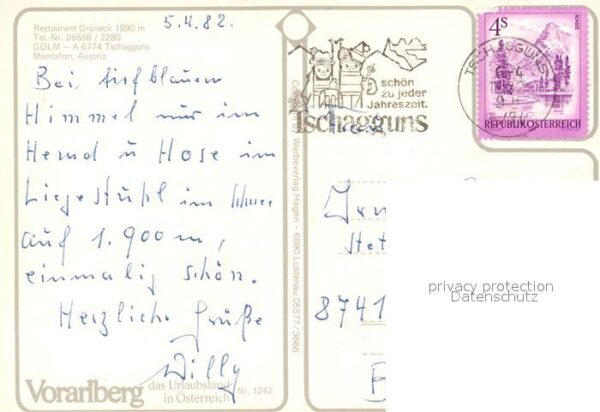 Restaurant Grüneck 1890 m
Tel.-Nr. 05556 / 2280
GOLM - A-6774 Tschagguns
Montafon, Austria
5.4.82.
Bei tiefblauem
Himmel nur im
Hemd u Hose im
Liegestuhl im Schnee
auf 1.900 m,
einmalig schön.
Herzliche Grüße
Willy
Vorarlberg das Urlaubsland
in Österreich
Nr. 1242
Werbeverlag Hagen - 6890 Lustenau 05577/3666
schön
zu jeder
Jahreszeit.
Tschagguns
TSCHAGGUNS
4S
REPUBLIK ÖSTERREICH
8741
privacy protection
Datenschutz